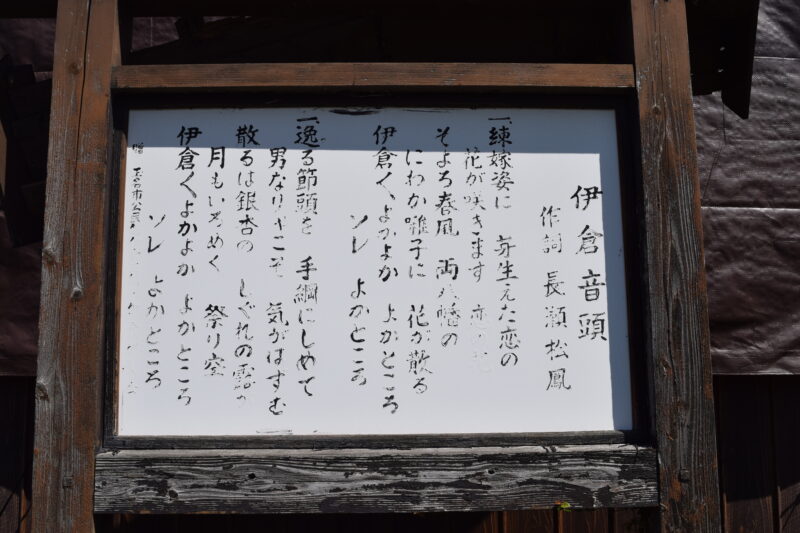 伊倉音頭
作詞 長瀬松鳳
一、練嫁姿に 芽生えた恋の
花が咲きます 恋の花
そよろ春風 両八幡の
にわか囃子に 花が散る
伊倉〳〵よかよか よかところ
ソレ よかところ
一、逸る節頭を 手綱にしめて
男なりゃこそ 気がはずむ
散るは銀杏の しぐれの露か
月もいろめく 祭り空
伊倉〳〵よかよか よかところ
ソレ よかところ
贈 玉名市公民